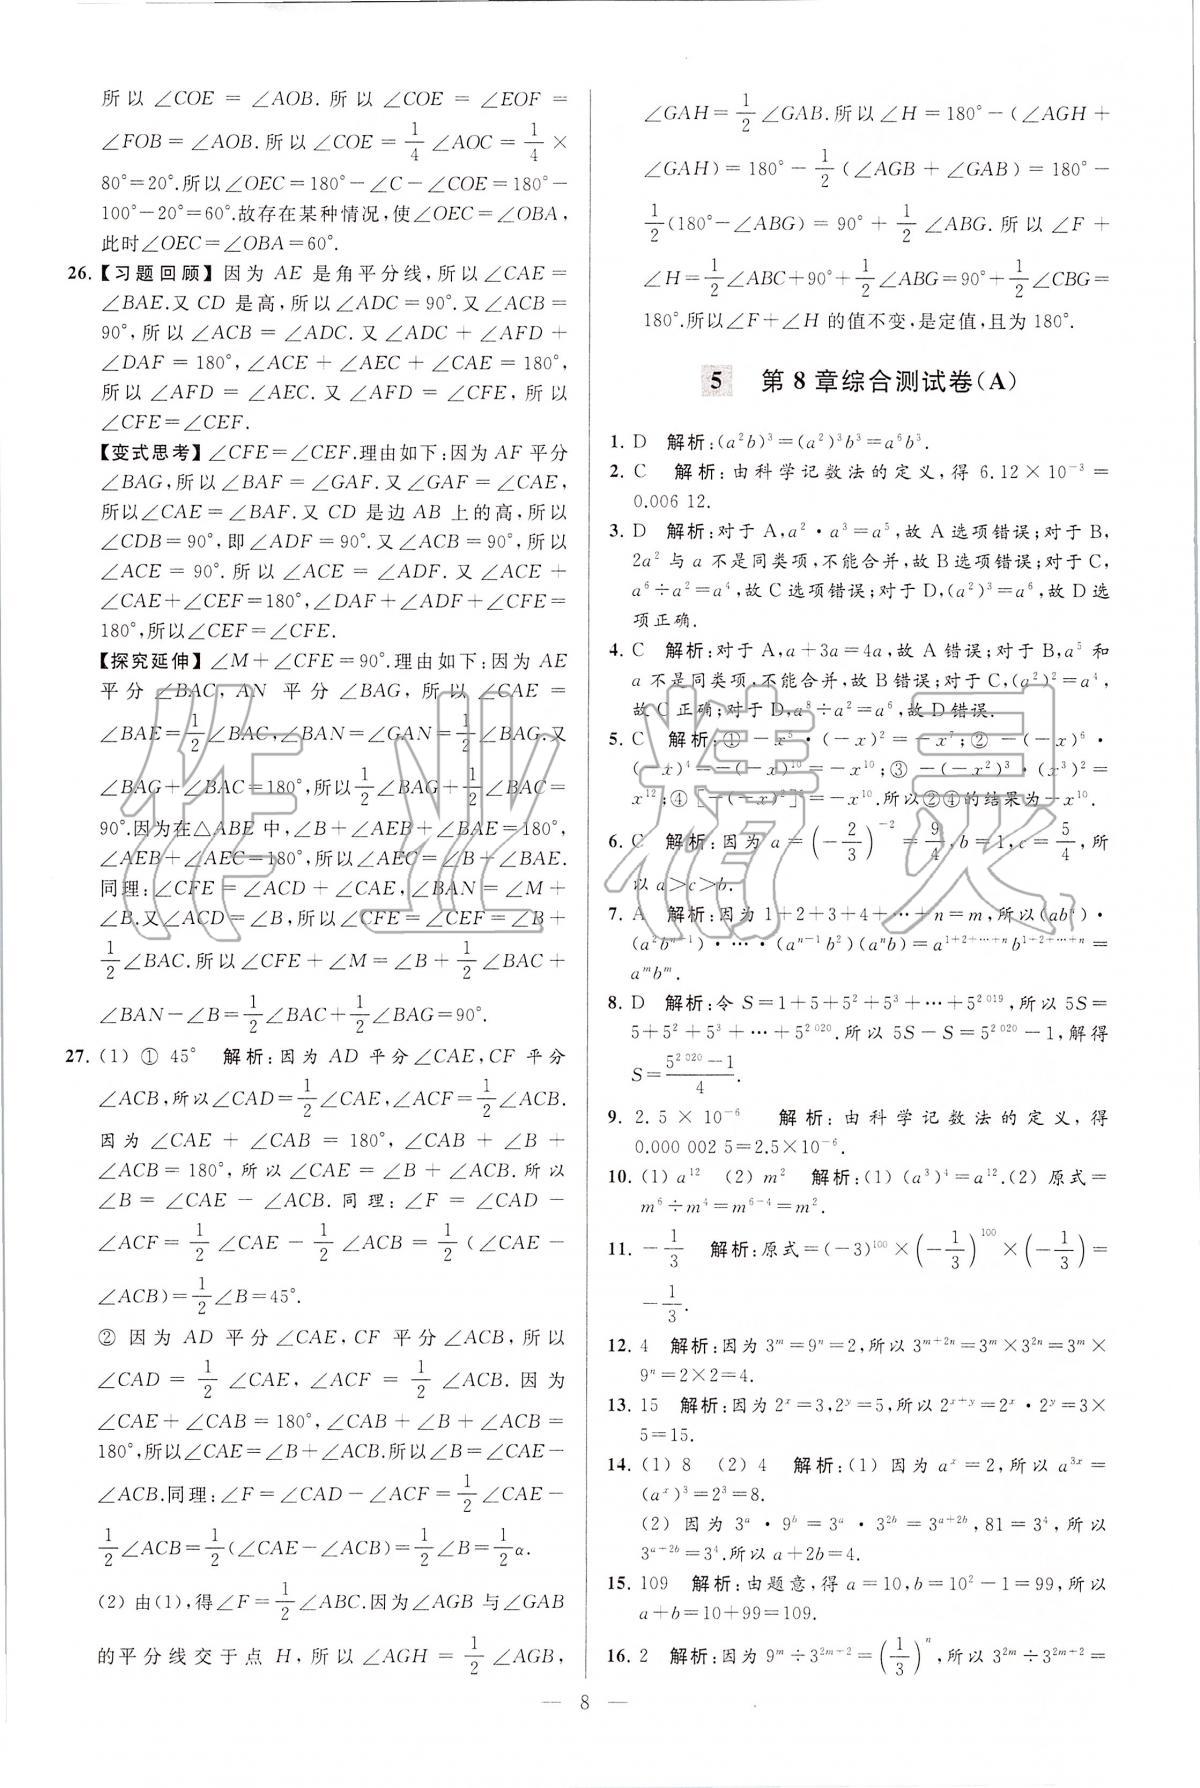 所以∠COE=∠AOB.所以∠COE=∠EOF=
∠FOB=∠AOB.所以∠COE=1/4∠AOC=1/4×
80°=20°.所以∠OEC=180°-∠C-∠COE=180°-
100°-20°=60°.故存在某种情况,使∠OEC=∠OBA,
此时∠OEC=∠OBA=60°.
26.【习题回顾】因为AE是角平分线,所以∠CAE=
∠BAE.又CD是高,所以∠ADC=90°.又∠ACB=
90°,所以∠ACB=∠ADC.又∠ADC+∠AFD+
∠DAF=180°,∠ACE+∠AEC+∠CAE=180°,
所以∠AFD=∠AEC.又∠AFD=∠CFE,所以
∠CFE=∠CEF.
【变式思考】∠CFE=∠CEF.理由如下:因为AF平分
∠BAG,所以∠BAF=∠GAF.又∠GAF=∠CAE,
所以∠CAE=∠BAF.又CD是边AB上的高,所以
∠CDB=90°,即∠ADF=90°.又∠ACB=90°,所以
∠ACE=90°.所以∠ACE=∠ADF.又∠ACE+
∠CAE+∠CEF=180°,∠DAF+∠ADF+∠CFE=
180°,所以∠CEF=∠CFE.
【探究延伸】∠M+∠CFE=90°.理由如下:因为AE
平分∠BAC,AN平分∠BAG,所以∠CAE=
∠BAE=1/2∠BAC,∠BAN=∠GAN=1/2∠BAG.又
∠BAG+∠BAC=180°,所以1/2∠BAG+1/2∠BAC=
90°.因为在△ABE中,∠B+∠AEB+∠BAE=180°,
∠AEB+∠AEC=180°,所以∠AEC=∠B+∠BAE.
同理:∠CFE=∠ACD+∠CAE,∠BAN=∠M+
∠B.又∠ACD=∠B,所以∠CFE=∠CEF=∠B+
1/2∠BAC.所以∠CFE+∠M=∠B+1/2∠BAC+
∠BAN-∠B=1/2∠BAC+1/2∠BAG=90°.
27.(1) ① 45° 解析:因为AD平分∠CAE,CF平分
∠ACB,所以∠CAD=1/2∠CAE,∠ACF=1/2∠ACB.
因为∠CAE+∠CAB=180°,∠CAB+∠B+
∠ACB=180°,所以∠CAE=∠B+∠ACB.所以
∠B=∠CAE-∠ACB.同理:∠F=∠CAD-
∠ACF=1/2∠CAE-1/2∠ACB=1/2(∠CAE-
∠ACB)=1/2∠B=45°.
② 因为AD平分∠CAE,CF平分∠ACB,所以
∠CAD=1/2∠CAE,∠ACF=1/2∠ACB.因为
∠CAE+∠CAB=180°,∠CAB+∠B+∠ACB=
180°,所以∠CAE=∠B+∠ACB.所以∠B=∠CAE-
∠ACB.同理:∠F=∠CAD-∠ACF=1/2∠CAE-
1/2∠ACB=1/2(∠CAE-∠ACB)=1/2∠B=1/2α.
(2) 由(1),得∠F=1/2∠ABC.因为∠AGB与∠GAB
的平分线交于点H,所以∠AGH=1/2∠AGB,
∠GAH=1/2∠GAB.所以∠H=180°-(∠AGH+
∠GAH)=180°-1/2(∠AGB+∠GAB)=180°-
1/2(180°-∠ABG)=90°+1/2∠ABG.所以∠F+
∠H=1/2∠ABC+90°+1/2∠ABG=90°+1/2∠CBG=
180°.所以∠F+∠H的值不变,是定值,且为180°.
5 第8章综合测试卷(A)
1. D 解析:(a²b)³=(a²)³b³=a⁶b³.
2. C 解析:由科学记数法的定义,得6.12×10⁻³=
0.006 12.
3. D 解析:对于A,a²·a³=a⁵,故A选项错误;对于B,
2a²与a不是同类项,不能合并,故B选项错误;对于C,
a⁶÷a²=a⁴,故C选项错误;对于D,(a²)³=a⁶,故D选
项正确.
4. C 解析:对于A,a+3a=4a,故A错误;对于B,a⁵和
a不是同类项,不能合并,故B错误;对于C,(a²)²=a⁴,
故C正确;对于D,a⁸÷a²=a⁶,故D错误.
5. C 解析:①-x⁵·(-x)²=-x⁷;②-(-x)⁶·
(-x)⁴=-(-x)¹⁰=-x¹⁰;③-(-x²)³·(x³)²=
x¹²;④[-(-x)²]⁵=-x¹⁰.所以②④的结果为-x¹⁰.
6. C 解析:因为a=(-2/3)⁻²=9/4,b=1,c=5/4,所
以a>c>b.
7. A 解析:因为1+2+3+4+…+n=m,所以(abⁿ)·
(a²bⁿ⁻¹)·…·(aⁿ⁻¹b²)(aⁿb)=a^(1+2+…+n)b^(1+2+…+n)=
aᵐbᵐ.
8. D 解析:令S=1+5+5²+5³+…+5^2 019,所以5S=
5+5²+5³+…+5^2 020.所以5S-S=5^2 020-1,解得
S=(5^2 020-1)/4.
9. 2.5×10⁻⁶ 解析:由科学记数法的定义,得
0.000 002 5=2.5×10⁻⁶.
10. (1) a¹² (2) m² 解析:(1) (a³)⁴=a¹².(2) 原式=
m⁶÷m⁴=m⁶⁻⁴=m².
11. -1/3 解析:原式=(-3)¹⁰⁰×(-1/3)¹⁰⁰×(-1/3)=
-1/3.
12. 4 解析:因为3ᵐ=9ⁿ=2,所以3ᵐ⁺²ⁿ=3ᵐ×3²ⁿ=3ᵐ×
9ⁿ=2×2=4.
13. 15 解析:因为2ˣ=3,2ʸ=5,所以2ˣ⁺ʸ=2ˣ·2ʸ=3×
5=15.
14. (1) 8 (2) 4 解析:(1) 因为aˣ=2,所以a³ˣ=
(aˣ)³=2³=8.
(2) 因为3ᵃ·9ᵇ=3ᵃ·3²ᵇ=3ᵃ⁺²ᵇ,81=3⁴,所以
3ᵃ⁺²ᵇ=3⁴.所以a+2b=4.
15. 109 解析:由题意,得a=10,b=10²-1=99,所以
a+b=10+99=109.
16. 2 解析:因为9ᵐ÷3²ᵐ⁺²=(1/3)ⁿ,所以3²ᵐ÷3²ᵐ⁺²=
— 8 —
作业精灵